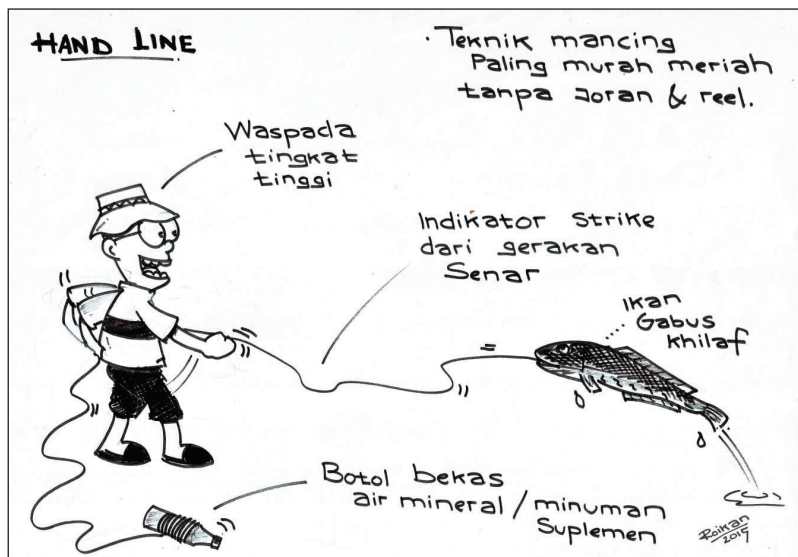 HAND LINE
· Teknik mancing
Paling murah meriah
tanpa Joran & reel.
Waspada
tingkat
tinggi
Indikator Strike
dari gerakan
Senar
Ikan
Gabus
khilaf
Botol bekas
air mineral / minuman
Suplemen
Roikan
2015